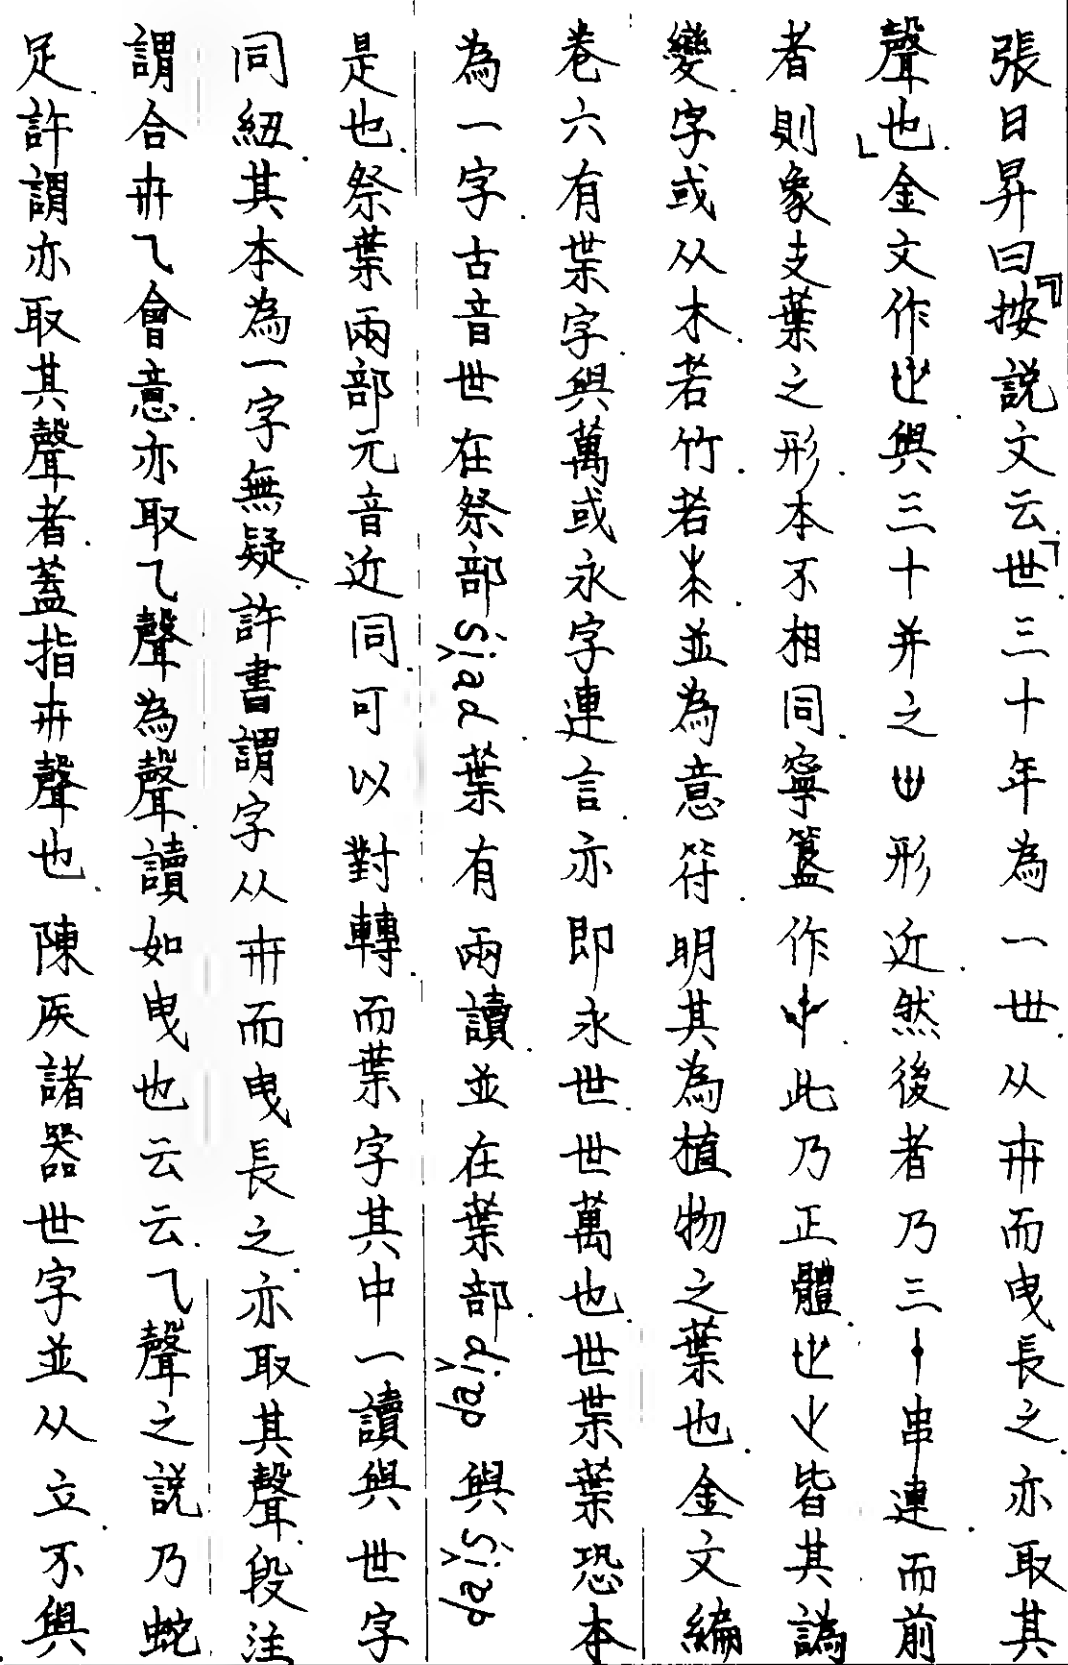 張日昇曰『按説文云「世三十年為一世从卉而曳長之亦取其
聲也」金文作與三十并之形近然後者乃三串連而前
者則象支葉之形本不相同寧簋作此乃正體皆其譌
變字或从木若竹若並為意符明其為植物之葉也金文編
卷六有枼字與萬或永字連言亦即永世世萬也世枼葉恐本
為一字古音世在祭部śi̯ad葉有兩讀並在葉部di̯ap與śi̯ap
是也祭葉兩部元音近同可以對轉而葉字其中一讀與世字
同紐其本為一字無疑許書謂字从卉而曳長之亦取其聲段注
謂合卉乁會意亦取乁聲為聲讀如曳也云云乁聲之説乃蛇
足許謂亦取其聲者蓋指卉聲也陳矦諸器世字並从立不與